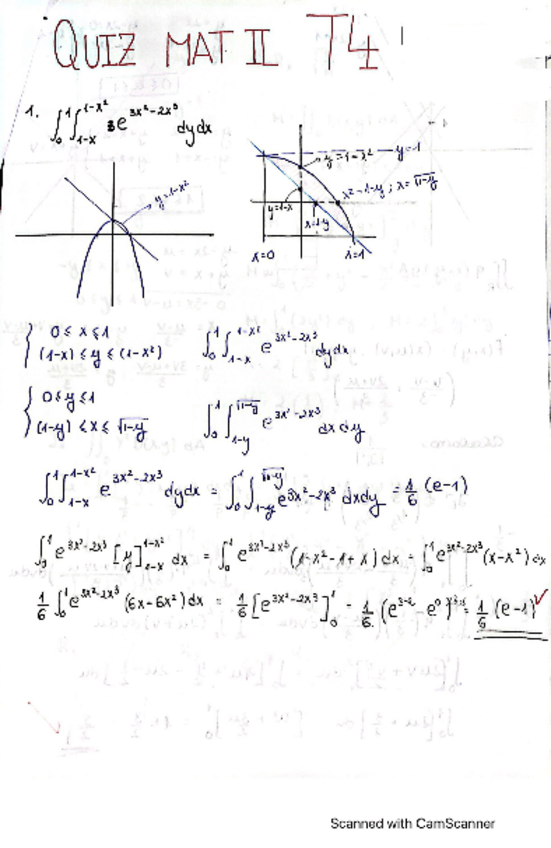 QUIZ MAT II T4
1. ∫₀¹∫₁₋ₓ^(1-x²) 3e^(3x²-2x³) dydx
y=1-x²
y=1-x² y=1
x²=1-y ; x=√(1-y)
y=1-x
x=1-y
x=0 x=1
{ 0≤x≤1
(1-x) ≤ y ≤ (1-x²) ∫₀¹∫₁₋ₓ^(1-x²) e^(3x²-2x³) dydx
{ 0≤y≤1
(1-y) ≤ x ≤ √(1-y) ∫₀¹∫₁₋ᵧ^(√(1-y)) e^(3x²-2x³) dxdy
∫₀¹∫₁₋ₓ^(1-x²) e^(3x²-2x³) dydx = ∫₀¹∫₁₋ᵧ^(√(1-y)) e^(3x²-2x³) dxdy = 1/6 (e-1)
∫₀¹ e^(3x²-2x³) [y]₁₋ₓ^(1-x²) dx = ∫₀¹ e^(3x²-2x³) (1-x²-1+x) dx = ∫₀¹ e^(3x²-2x³) (x-x²) dx
1/6 ∫₀¹ e^(3x²-2x³) (6x-6x²) dx = 1/6 [e^(3x²-2x³)]₀¹ = 1/6 (e^(3-2) - e⁰) = 1/6 (e-1)
Scanned with CamScanner